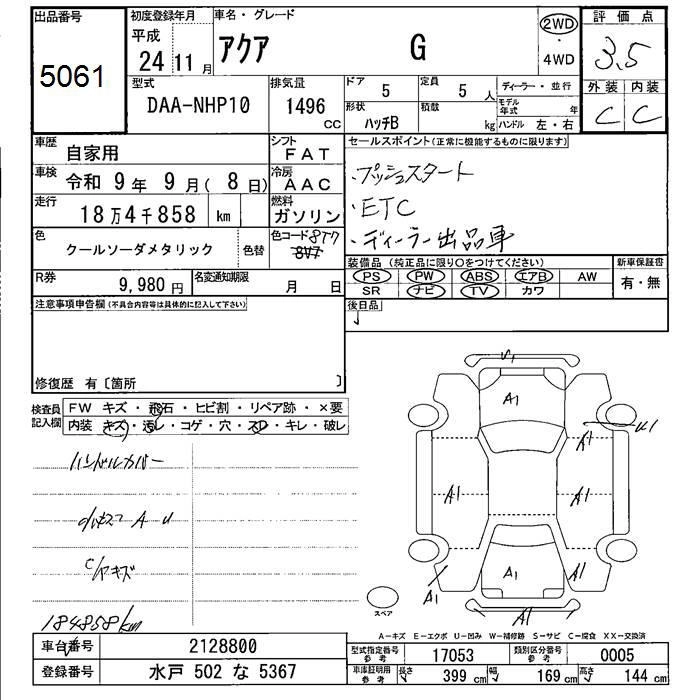 出品番号 初度登録年月 車名・グレード 評価点
5061
平成 24 11月 アクア G 2WD・4WD 3.5
外装 内装
C C
型式 排気量 ドア 定員 ディーラー・並行
DAA-NHP10 1496 CC 5 5人
形状 積載 モデル年式 年
ハッチB kg ハンドル 左・右
車歴 自家用 シフト FAT
セールスポイント(正常に機能するものに限ります)
車検 令和 9年 9月( 8日) 冷房 AAC
・プッシュスタート
走行 18万4千858 km 燃料 ガソリン
・ETC
色 クールソーダメタリック 色替 色コード 8T7
8V7
・ディーラー出品車
R券 9,980円 名変通知期限 月 日
装備品(純正品に限り○をつけてください) 新車保証書
PS PW ABS エアB AW 有・無
SR ナビ TV カワ
注意事項申告欄(不具合内容等は具体的に記入して下さい)
後日品
修復歴 有〔箇所 〕
検査員記入欄 FW キズ・飛石・ヒビ割・リペア跡・×要
内装 キズ・汚レ・コゲ・穴・スレ・キレ・破レ
ハンドルカバー
A-U
キズ
184858km
A1
A1
A1
A1
A1
A1
A1
スペア
A-キズ E-エクボ U-凹み W-補修跡 S-サビ C-腐食 XX-交換済
車台番号 2128800 型式指定番号 参考 17053 類別区分番号 参考 0005
登録番号 水戸 502 な 5367 車庫証明用 参考 長さ 399 cm 幅 169 cm 高さ 144 cm